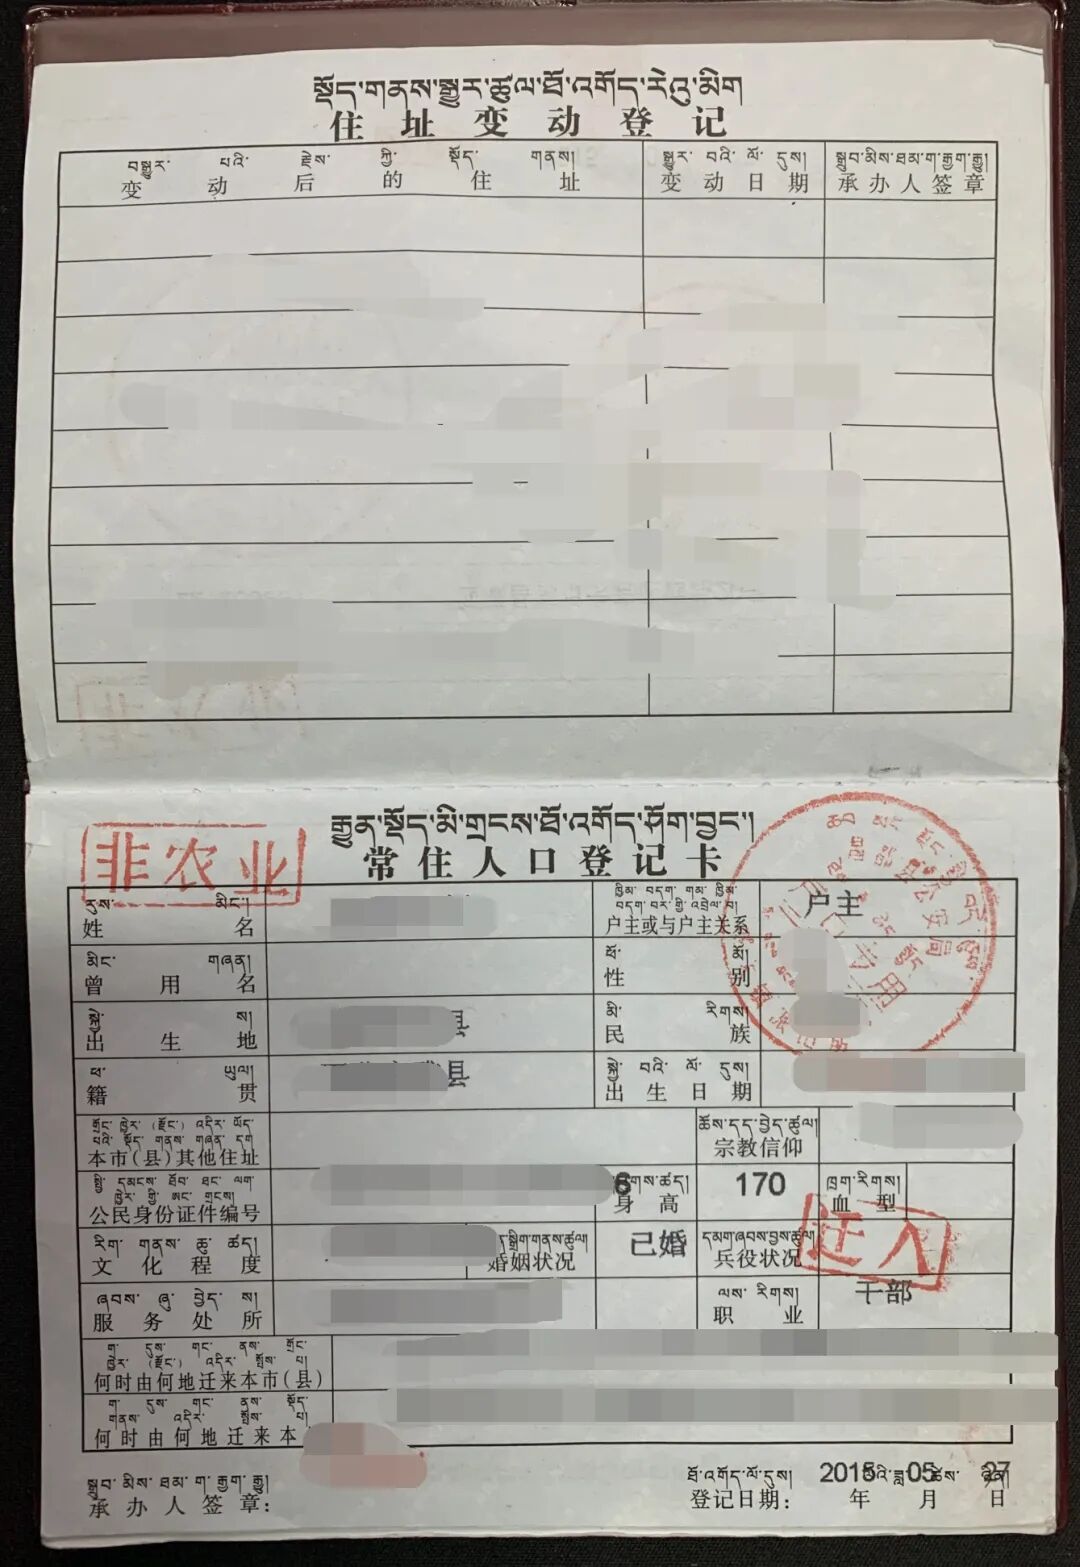 སྡོད་གནས་སྒྱུར་ཚུལ་ཐོ་འགོད་རེའུ་མིག
住址变动登记
བསྒྱུར་ པའི་ རྗེས་ ཀྱི་ སྡོད་ གནས།
སྒྱུར་ བའི་ ལོ་ དུས།
སྒྲུབ་མིས་ཐམ་ག་རྒྱག་རྒྱུ།
变动后的住址
变动日期
承办人签章
རྒྱུན་སྡོད་མི་གྲངས་ཐོ་འགོད་ཤོག་བྱང་།
非农业
常住人口登记卡
རུས་ མིང་།
ཁྱིམ་ བདག་ གམ་ ཁྱིམ་
བདག་ བར་ གྱི་ འབྲེལ་ བ།
姓名
户主或与户主关系
户主
མིང་ གཞན།
ཕོ་ མོ།
曾用名
性别
སྐྱེ་ ས།
མི་ རིགས།
出生地
县
民族
ཕ་ ཡུལ།
སྐྱེ་ བའི་ ལོ་ དུས།
籍贯
县
出生日期
གྲོང་ ཁྱེར་ (རྫོང་) འདིར་ ཡོད་
པའི་ སྡོད་ གནས་ གཞན་ དག
ཆོས་དད་བྱེད་ཚུལ།
本市(县)其他住址
宗教信仰
公民身份证件编号
6
身高
170
ཁྲག་རིགས།
血型
རིག་ གནས་ ཆུ་ ཚད།
文化程度
婚姻状况
已婚
དམག་ཞབས་བྱས་ཚུལ།
兵役状况
迁入
ཞབས་ ཞུ་ བྱེད་ ས།
ལས་ རིགས།
服务处所
职业
干部
ག་ དུས་ གང་ ནས་ གྲོང་
ཁྱེར་ (རྫོང་) འདིར་ སྤོས་ པ།
何时由何地迁来本市(县)
ག་ དུས་ གང་ ནས་ སྡོད་
གནས་ འདིར་ སྤོས་ པ།
何时由何地迁来本
སྒྲུབ་ མིས་ ཐམ་ ག་ རྒྱག་ རྒྱུ།
承办人签章:
ཐོ་འགོད་ལོ་དུས།
登记日期: 2015年05月27日